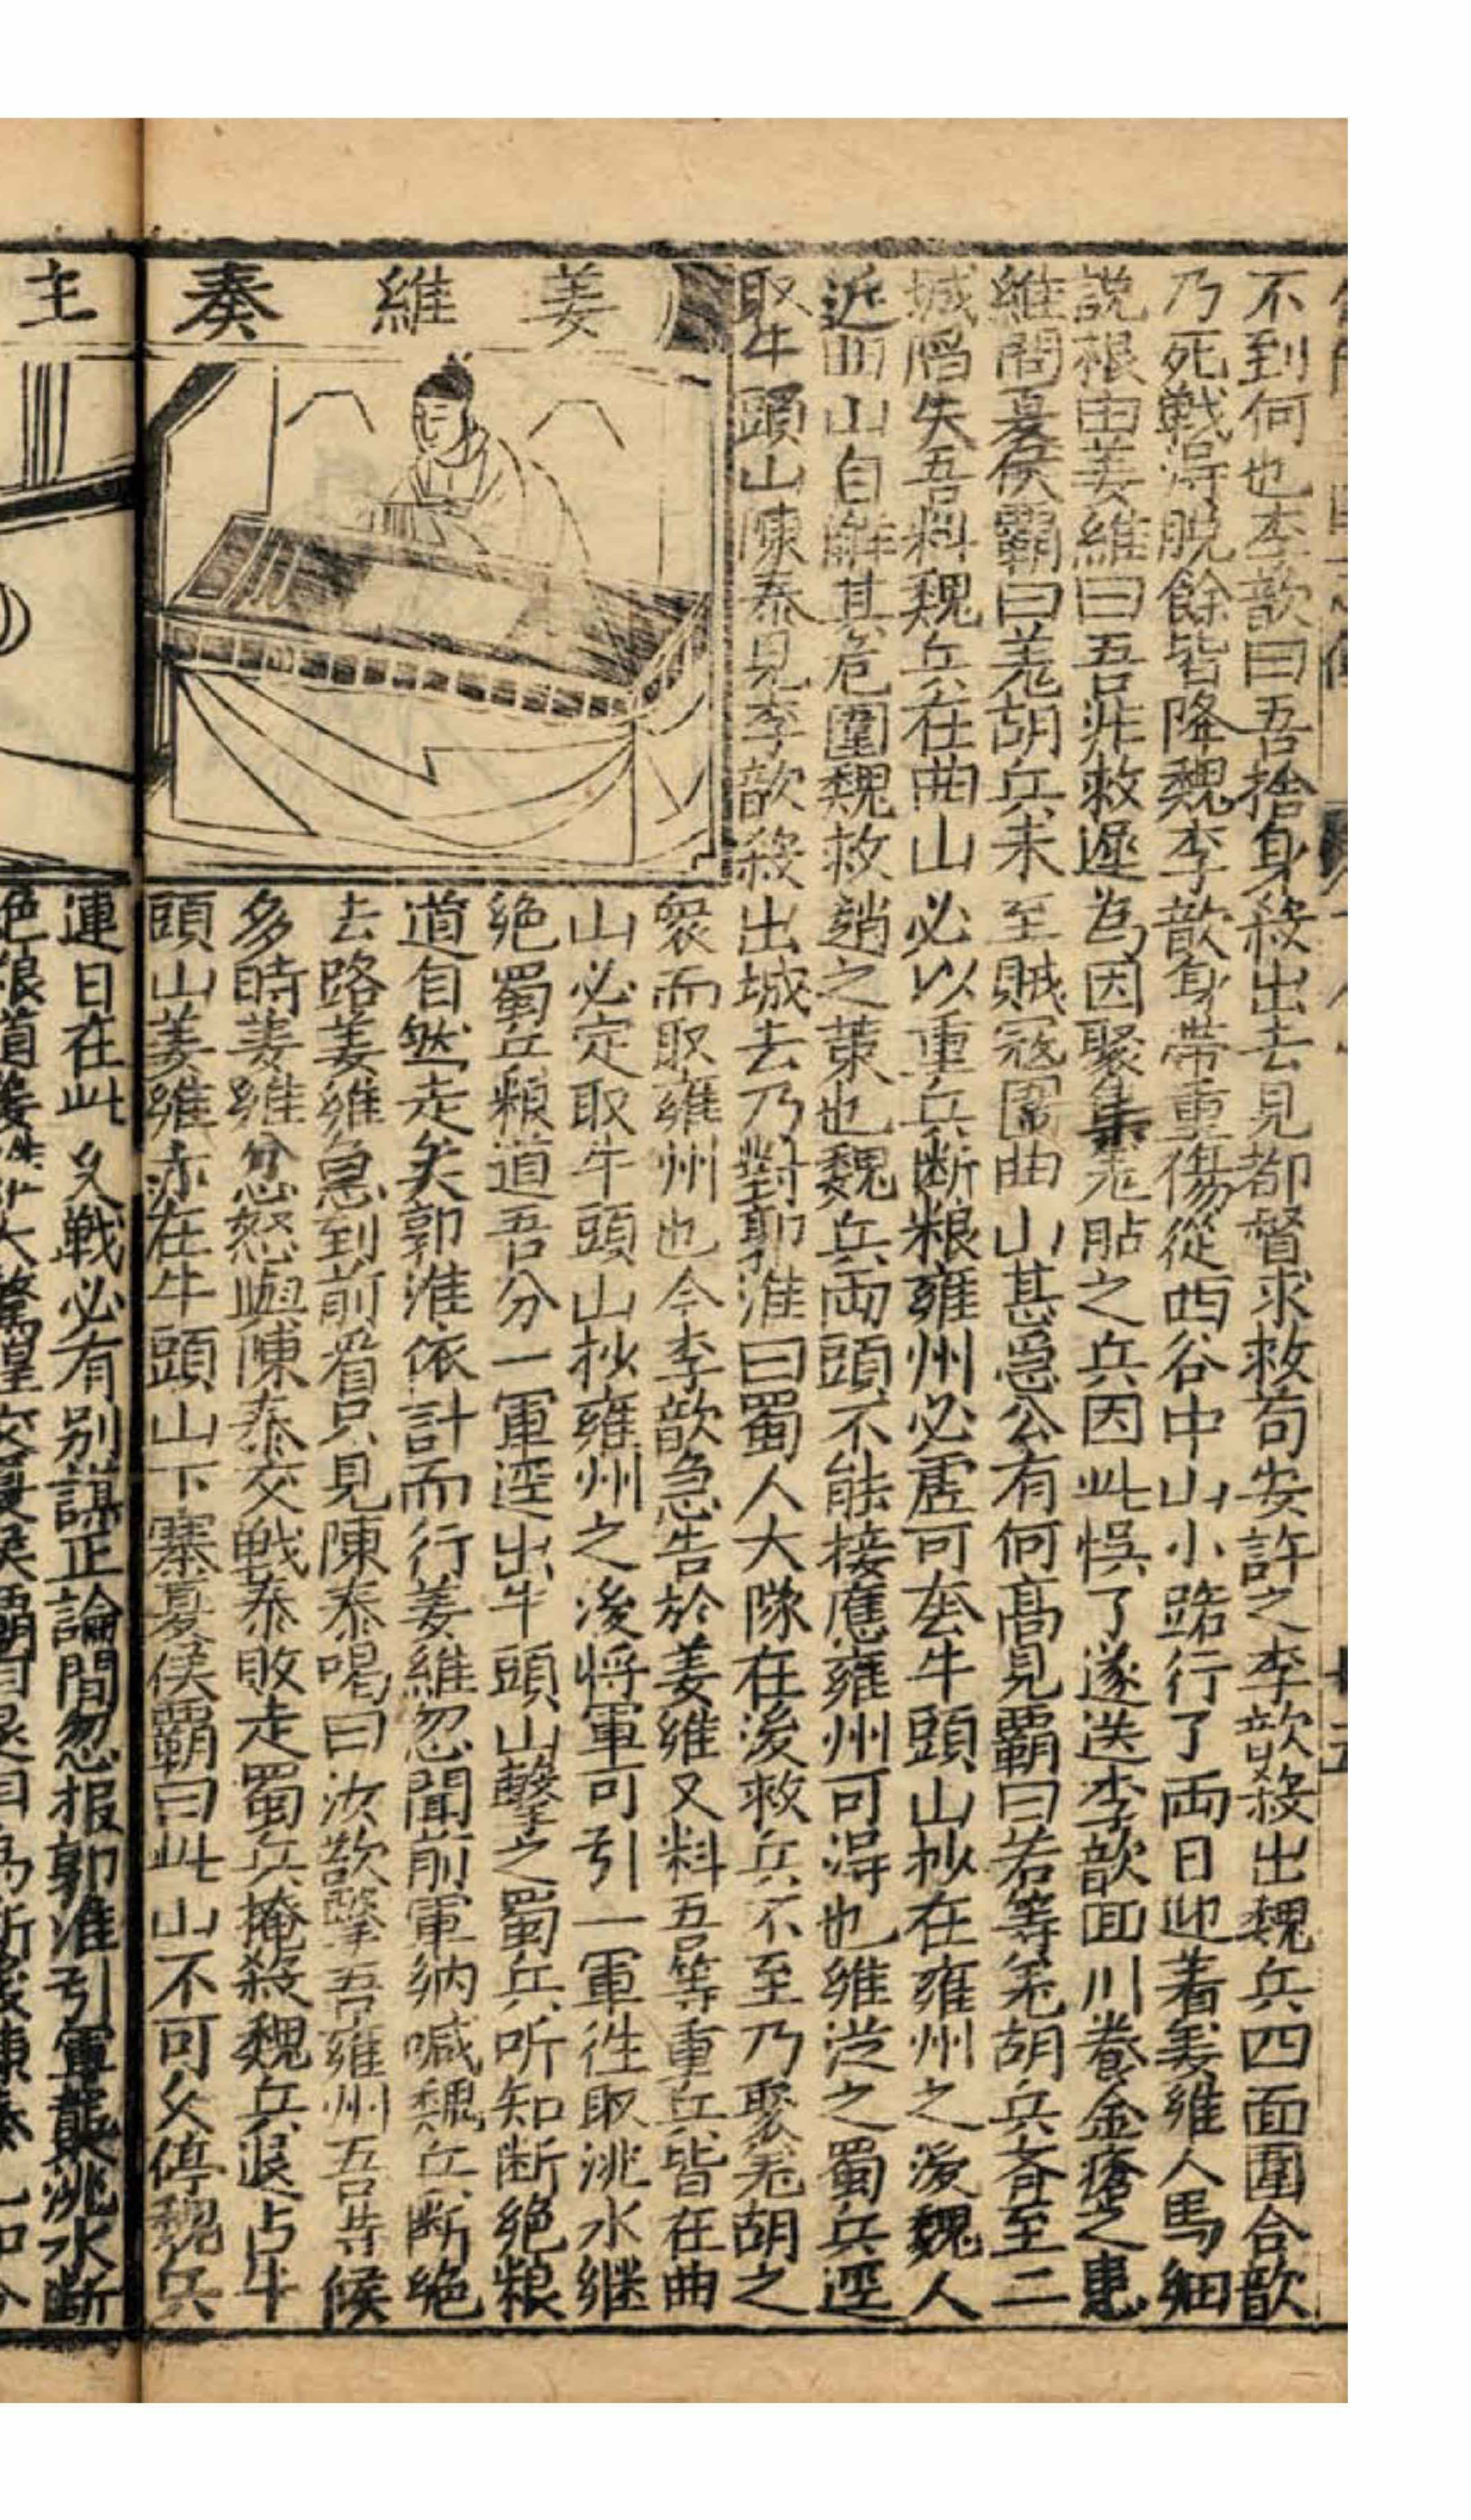 不到何也李歆曰吾捨身殺出去見都督求救苟安許之李歆殺出魏兵四面圍合歆
乃死戰淂脱餘皆降魏李歆身帶重傷從西谷中山小路行了両日迎着姜維人馬細
説根由姜維曰吾非救遲為因聚集羌胡之兵因此悞了遂送李歆囬川養金瘡之患
維問夏侯霸曰羗胡兵未至賊冦圍曲山甚急公有何髙見霸曰若等羌胡兵斉至二
城陷失吾料魏兵在曲山必以重兵断粮雍州必虗可去牛頭山抄在雍州之後魏人
近曲山自觧其危圍魏救趙之策也魏兵両頭不能接應雍州可淂也維従之蜀兵逕
取牛頭山陳泰見李歆殺出城去乃對郭淮曰蜀人大隊在後救兵不至乃聚羌胡之
姜維奏主
衆而取雍州也今李歆急告於姜維又料吾等重兵皆在曲
山必定取牛頭山抄雍州之後将軍可引一軍徃取洮水継
絶蜀兵粮道吾分一軍逕出牛頭山擊之蜀兵所知断絶粮
道自然走矣郭淮依計而行姜維忽聞前軍納喊魏兵断絶
去路姜維急到前看只見陳泰喝曰汝欲擊吾雍州吾等候
多時姜維忿怒與陳泰交戰泰敗走蜀兵掩殺魏兵退占牛
頭山姜維亦在牛頭山下寨夏侯霸曰此山不可久停魏兵
連日在此久戰必有别謀正論間忽报郭淮引軍襲洮水断